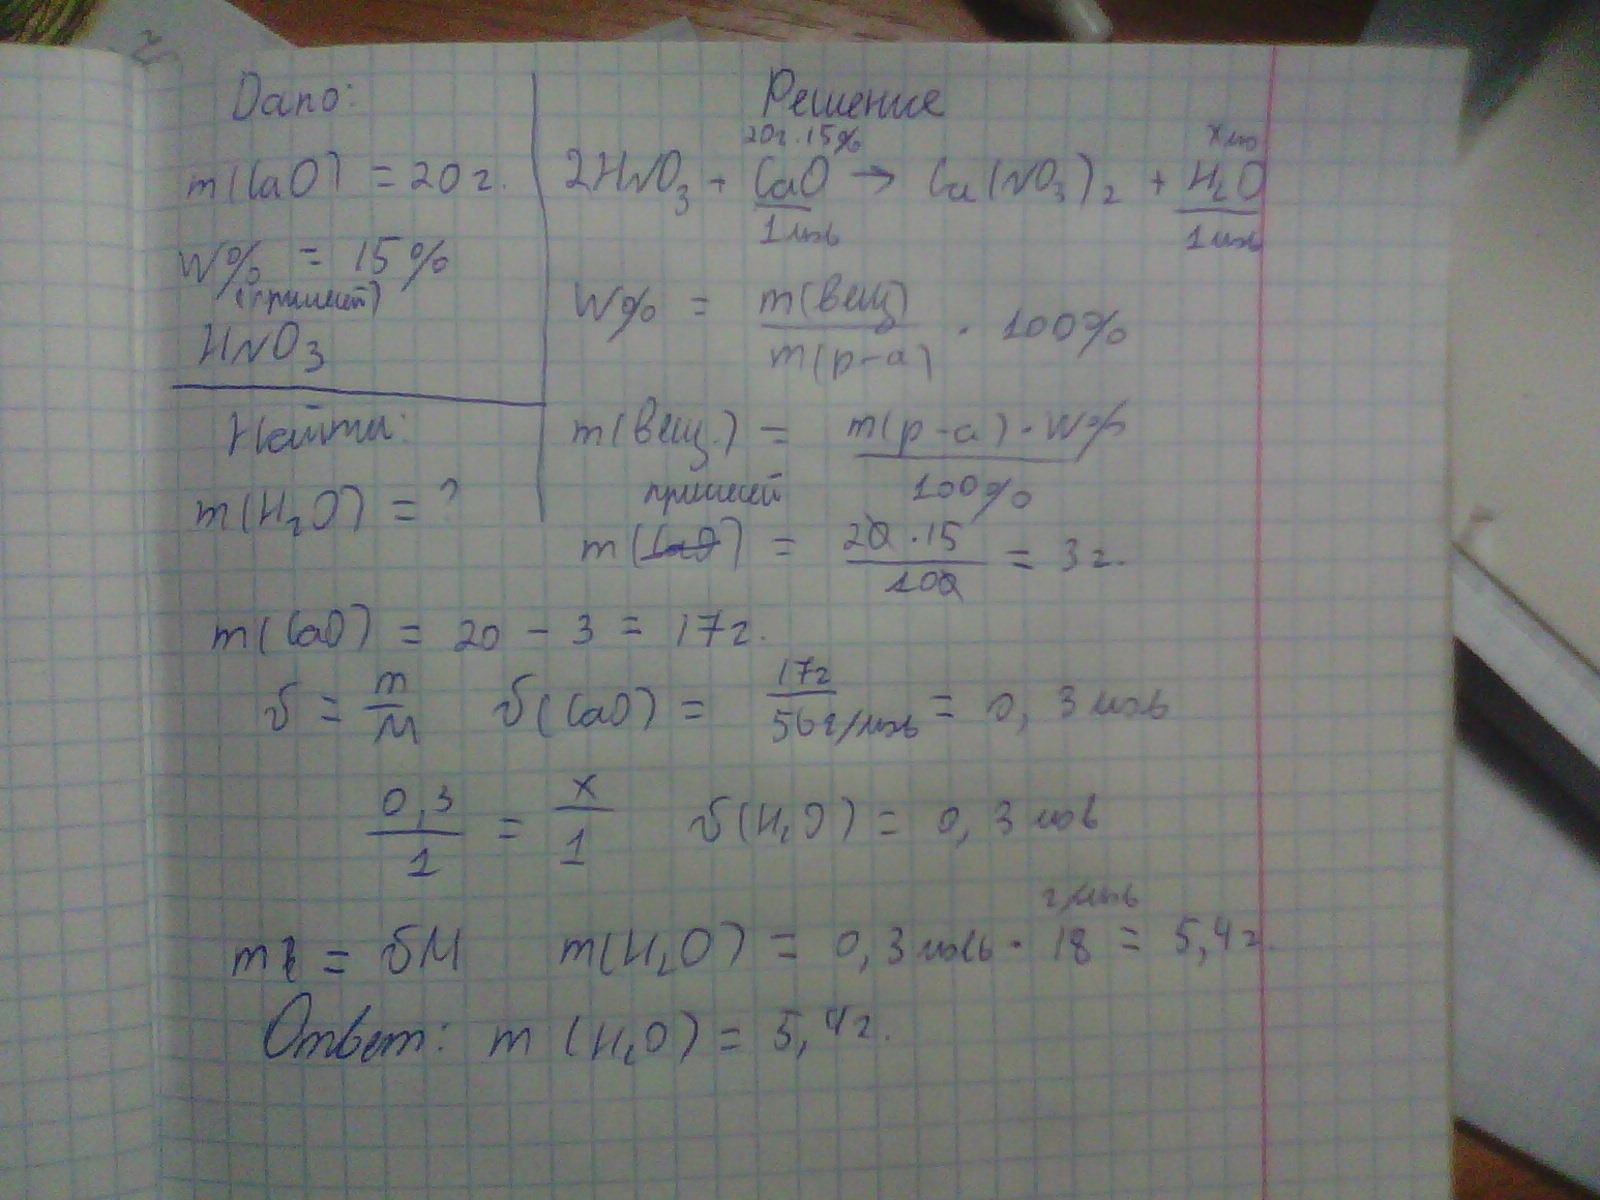 Дано:
m(CaO) = 20г.
W% = 15%
(примесей)
HNO3
Найти:
m(H2O) = ?
Решение
20г. 15%
2HNO3 + CaO → Ca(NO3)2 + H2O
1 моль 1 моль
W% = m(вещ) / m(р-а) · 100%
m(вещ.) = m(р-а) · W% / 100%
примесей
m(CaO) = 20 · 15 / 100 = 3г.
m(CaO) = 20 - 3 = 17г.
υ = m / M υ(CaO) = 17г / 56г/моль = 0,3 моль
0,3 / 1 = x / 1 υ(H2O) = 0,3 моль
m = υM m(H2O) = 0,3 моль · 18 г/моль = 5,4г.
Ответ: m (H2O) = 5,4г.